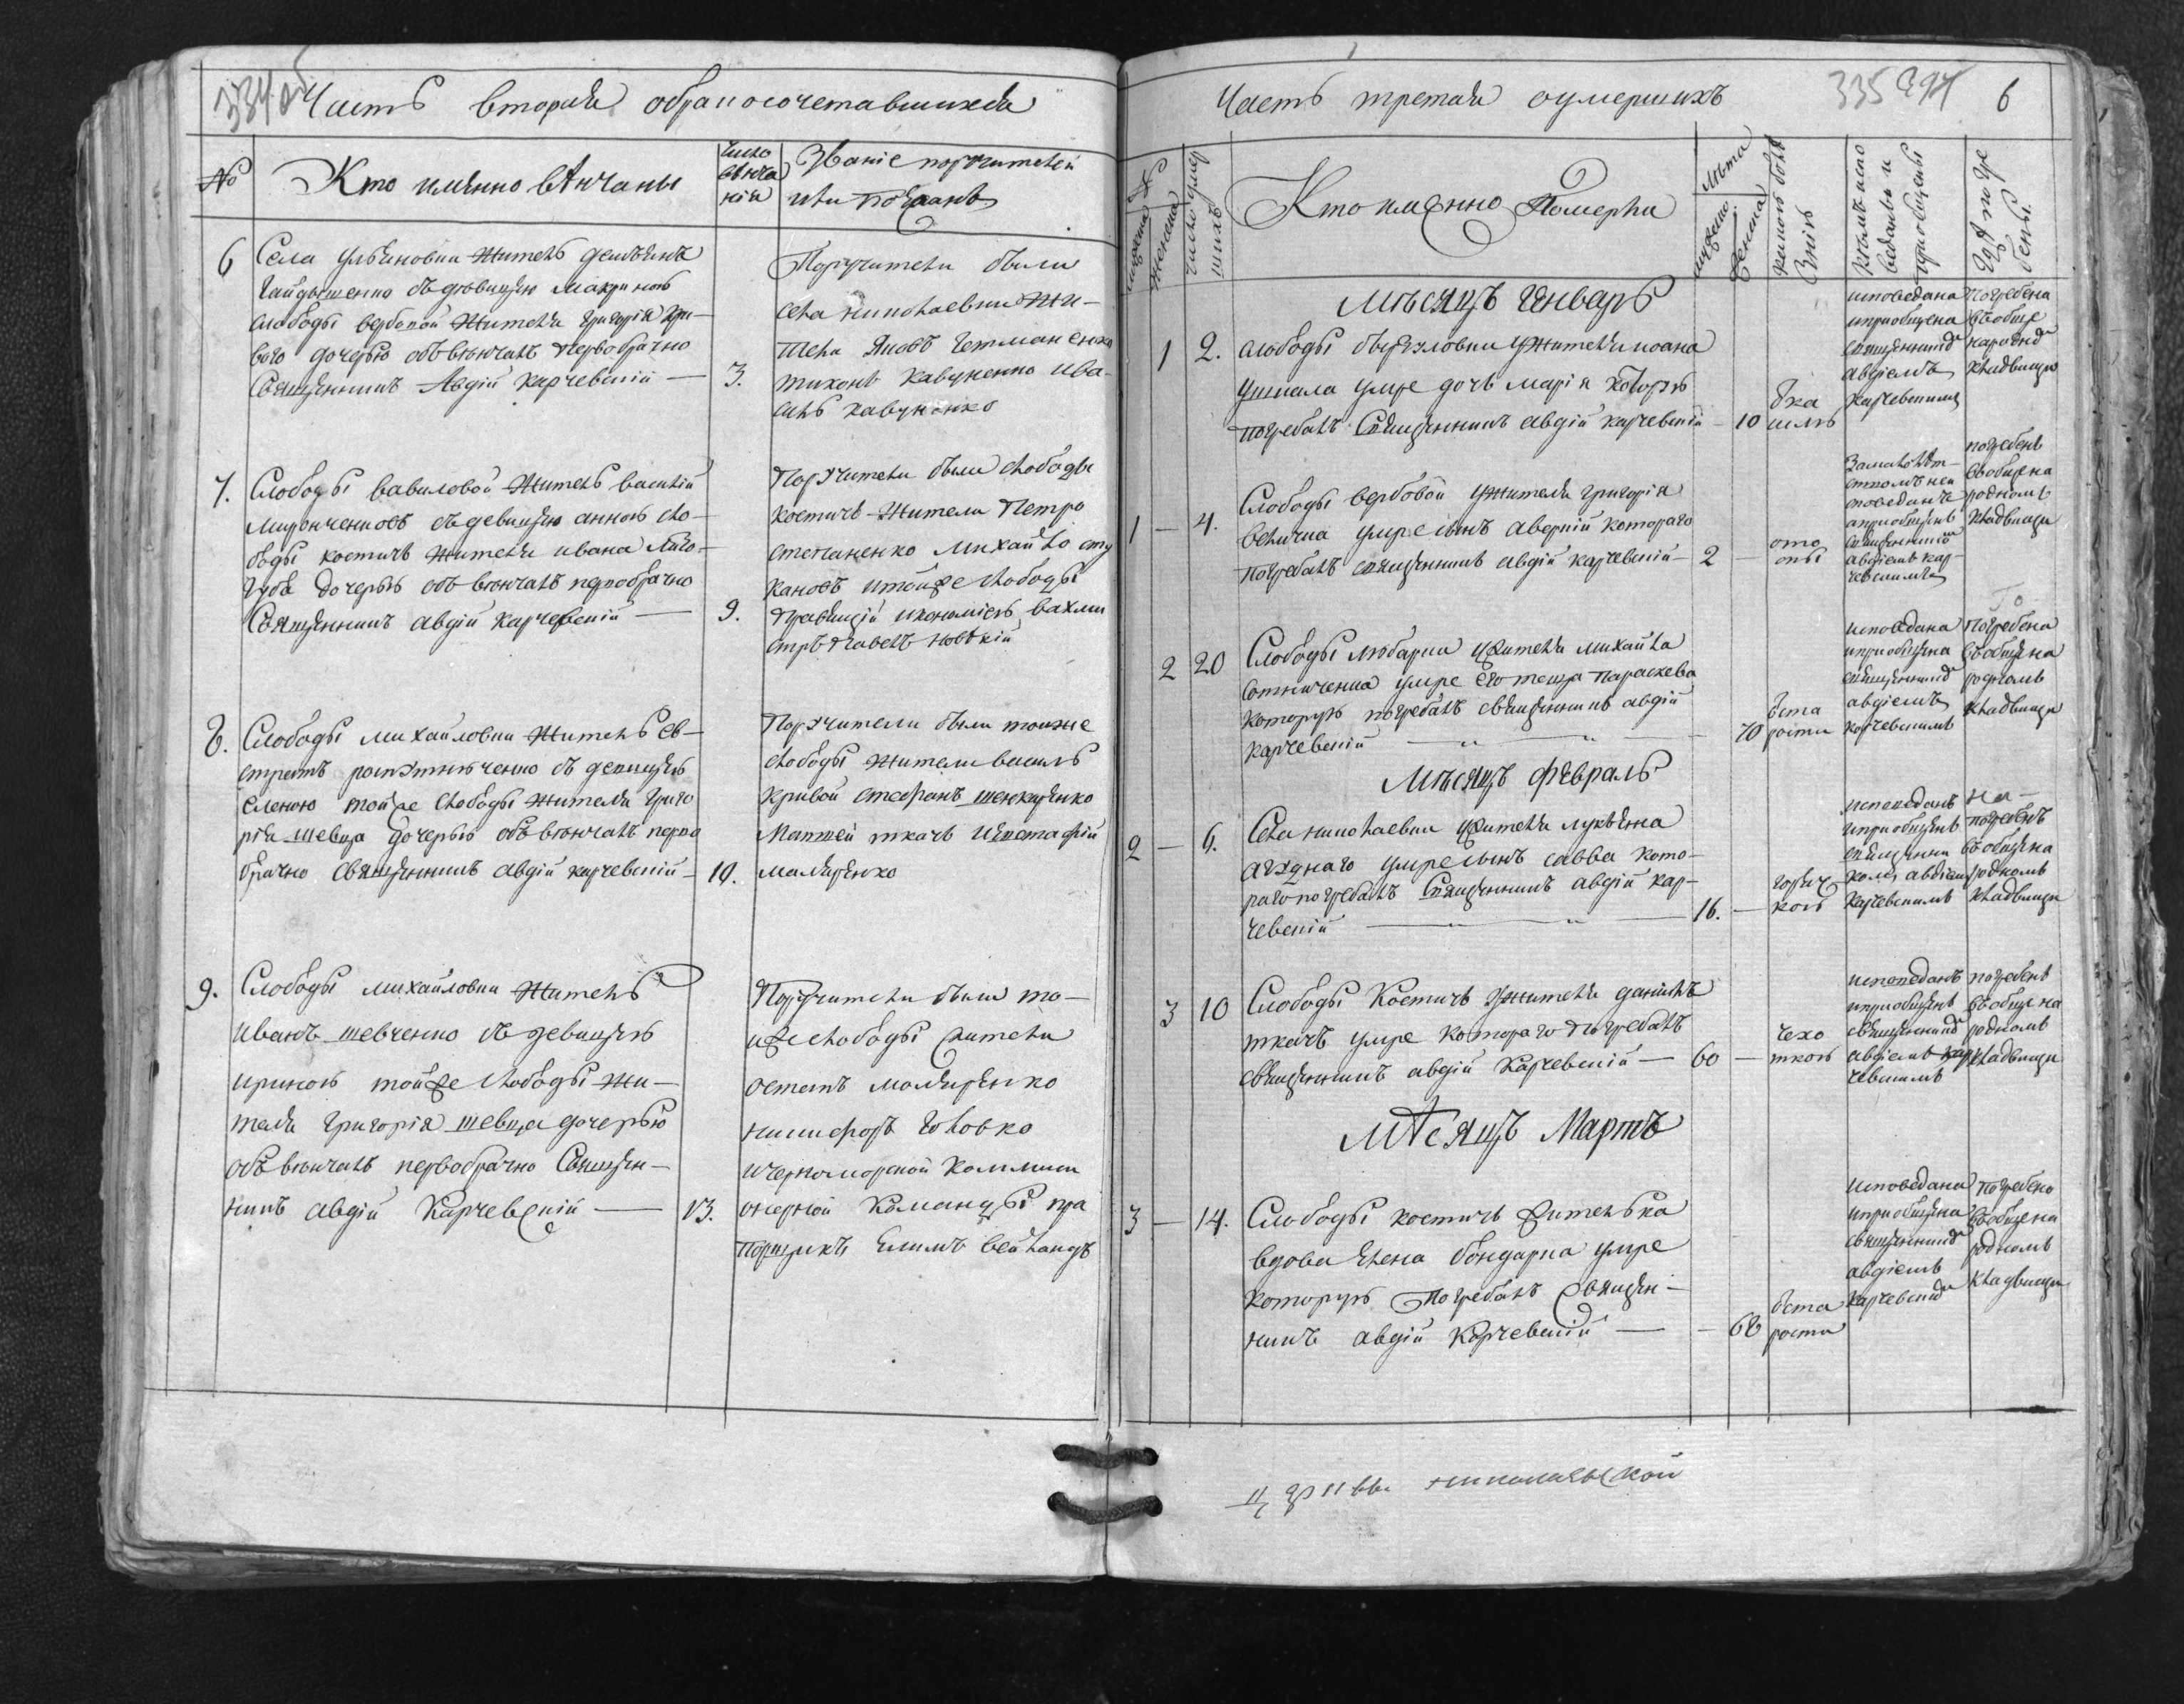 334 об
Часть вторая обракосочетавшихся
№
Кто именно венчаны
Число
венча
нія
Званіе поручителей
или поезжанъ
6
Села ульяновки житель демьянъ
Гайдышенко съ девицею Макриною
слободы вербовой жителя григорія
дочерью обвенчалъ первобрачно
Священникъ Авдій карчевскій —
3.
Поручители были
села николаевки жи-
тели Яковъ гетманенко
тихонъ кавуненко ива-
силь кавуненко
7.
Слободы вавиловой житель василій
миронченковъ съ девицею анною сло-
боды костичъ жителя ивана
дочерью обвенчалъ первобрачно
Священникъ авдій карчевскій —
9.
Поручители были слободы
костичъ жители Петро
степаненко михайло сту
кановъ и тойже слободы
вахми
стръ павелъ
8.
Слободы михайловки житель ев-
стратъ съ девицею
еленою тойже слободы жителя григо
рія шевца дочерью обвенчалъ перво
брачно священникъ авдій карчевскій —
10.
Поручители были тоиже
слободы жители василь
кривой стефанъ
Матвей ткачъ
маляренко
9.
Слободы михайловки житель
иванъ шевченко съ девицею
ириною тойже слободы жи-
теля григорія шевца дочерью
обвенчалъ первобрачно Священ-
никъ авдій Карчевскій —
13.
Поручители были то-
иже слободы жители
остапъ маляренко
никифоръ головко
ичерноморской коммиси
онерной команды пра
порщикъ
Часть третая оумершихъ
335
6
№
мужеска
женска
число умер
шихъ
Кто именно Померли
Лета
мужеска
женска
какою боле
знію
кемъ испо
веданы и
приобщены
Где погре
бены.
Месяцъ Генварь
1
2.
слободы жителя иоана
умре дочь марія которую
погребалъ Священникъ авдій карчевскій —
10
исповедана
иприобщена
священникомъ
авдіемъ
карчевскимъ
Погребена
въобще
народномъ
кладвище
1 —
4.
Слободы вербовой жителя григорія
величка умре сынъ аверкій котораго
погребалъ священникъ авдій карчевскій —
2 —
ото
спы
Замалолет-
ствомъ неи
споведанъ
априобщенъ
священникомъ
авдіемъ кар-
чевскимъ
погребенъ
вобщена
родномъ
кладвищи
2
20
Слободы любарки жителя михайла
сотниченка умре его теща параскева
которую погребалъ священникъ авдій
карчевскій — „ — „ —
70
отста
рости
исповедана
иприобщена
священникомъ
авдіемъ
карчевскимъ
Погребена
въобщена
родномъ
кладвищи
Месяцъ февраль
2 —
6.
Села николаевки жителя лукьяна
умре сынъ савва кото-
раго погребалъ Священникъ авдій кар-
чевскій — „ — „ —
16. —
горяч
кою
исповеданъ
иприобщенъ
священни
комъ авдіемъ
карчевскимъ
погребенъ
въобщена
родномъ
кладвищи
3
10
Слободы Костичъ жителя данилъ
ткачъ умре котораго погребалъ
священникъ авдій Карчевскій —
60 —
чехо
ткою
исповеданъ
иприобщенъ
священникомъ
авдіемъ кар
чевскимъ
погребенъ
въобщена
родномъ
кладвищи
Месяцъ Мартъ
3 —
14.
Слободы костичъ жителька
вдова елена бондарка умре
которую Погребалъ Священ-
никъ авдій Карчевскій —
— 68
отста
рости
исповедана
иприобщена
священникомъ
авдіемъ
карчевскимъ
погребена
вообщена
родномъ
кладвищи
церквы николаевской